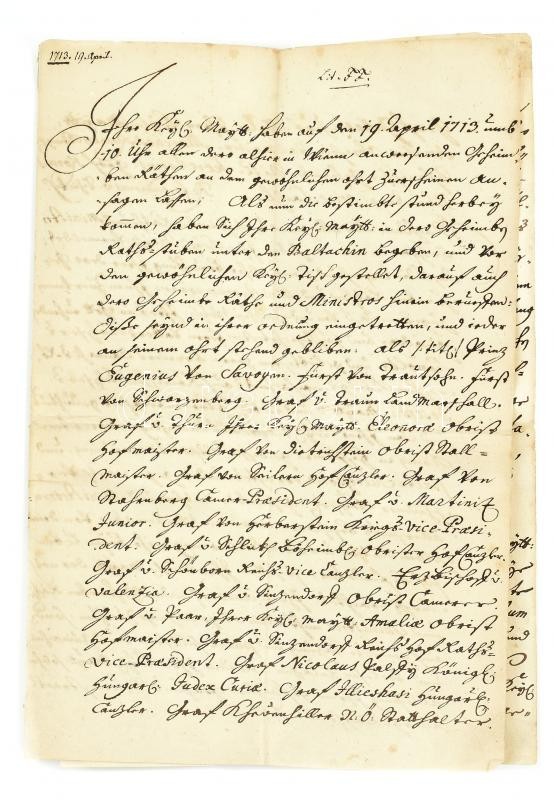 1713. 19. April.
Lit. FF.
Ihre Keyl. Maytt. haben auf den 19. April 1713. umb
10. Uhr allen dero alhier in Wienn anwesenden Geheim-
ben Räthen an dem gewöhnlichen ohrt zuerscheinen an-
sagen lassen; Als nun die bestimbte stund herbey
kommen, haben Sich Ihre Keyl. Maytt. in dero Geheimbe
Raths-stuben unter den Baltachin begeben, und vor
den gewöhnlichen Keyl. Tisch gestellet, darauf auch
dero Geheimbe Räthe und Ministros hinein beruffen:
Diße seynd in ihrer ordnung eingetretten, und ieder
an seinem ohrt stehend gebliben. als /:tit:/ Prinz
Eugenius von Savoyen. Fürst von Trautsohn. Fürst
von Schwarzenberg. Graf v. Traun Land Marschall.
Graf v. Thurn Ihrer Keyl. Maytt. Eleonoræ Obrist
Hofmaister. Graf von Dietrichstein Obrist Stall-
maister. Graf von Seilern Hof Canzler. Graf von
Starhenberg Camer-Præsident. Graf v. Martiniz
Junior. Graf von Herberstein Kriegs-Vice-Præsi-
dent. Graf v. Schlickh Böheimbl. Obrister Hof Canzler.
Graf v. Schönborn Reichs Vice Canzler. Erz Bischoff v.
Valentia. Graf v. Sinzendorff Obrist Camerer.
Graf v. Paar, Ihrer Keyl. Maytt. Amaliæ Obrist
Hofmaister. Graf v. Sinzendorff Reichs Hof Raths-
Vice-Præsident. Graf Nicolaus Palffy Königl.
Hungarl. Judex Curiæ. Graf Illieshasi Hungarl.
Canzler. Graf Khevenhiller N.Ö. Statthalter.